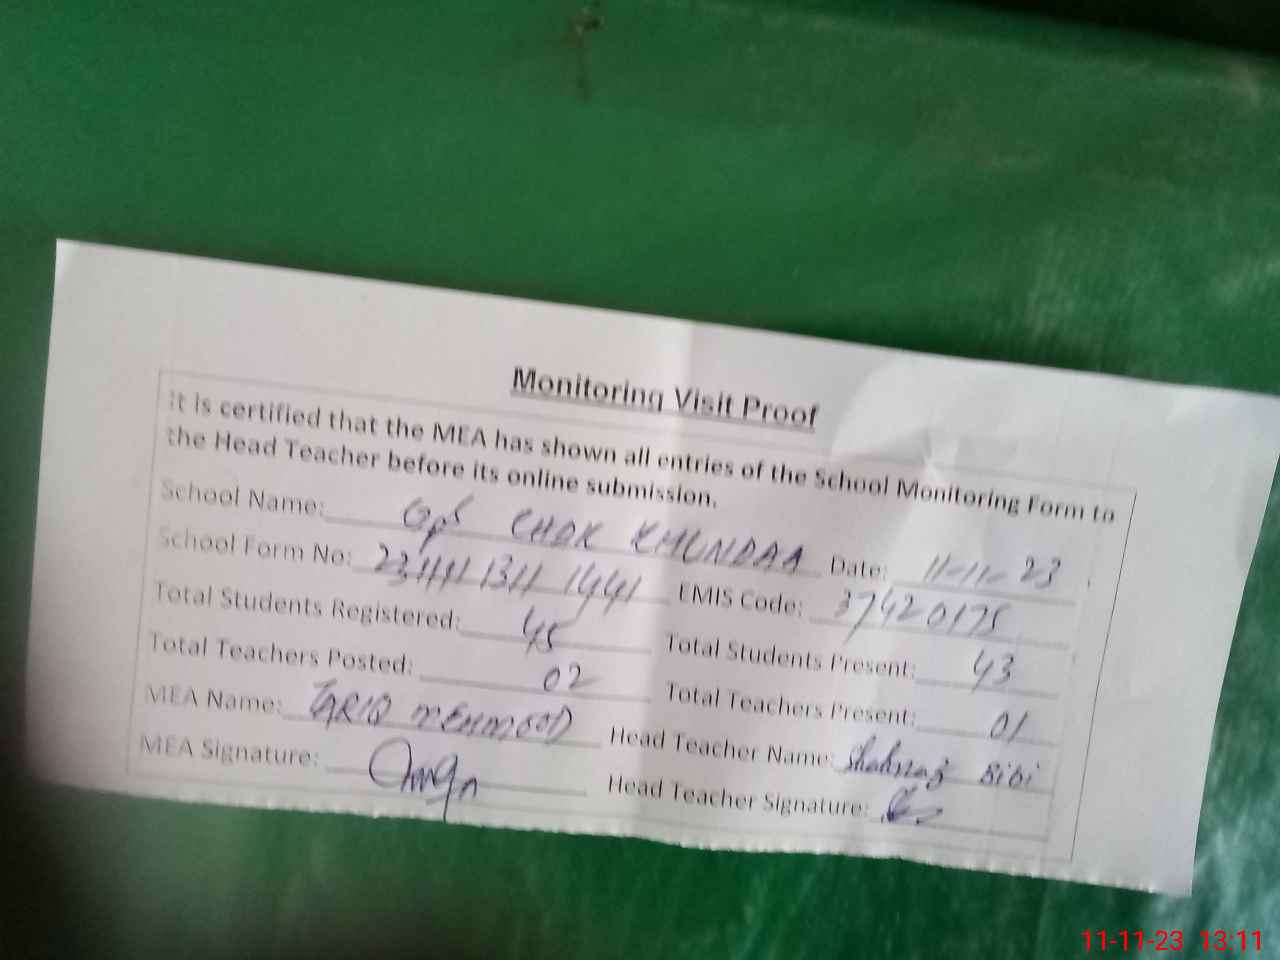 Monitoring Visit Proof
It is certified that the MEA has shown all entries of the School Monitoring Form to
the Head Teacher before its online submission.
School Name: GPS CHOK KHUNDAA Date: 11-11-23
School Form No: EMIS Code: 37420175
Total Students Registered: 45 Total Students Present: 43
Total Teachers Posted: 02 Total Teachers Present: 01
MEA Name: TARIQ MEHMOOD Head Teacher Name: Shahnaz Bibi
MEA Signature: Head Teacher Signature:
11-11-23 13:11